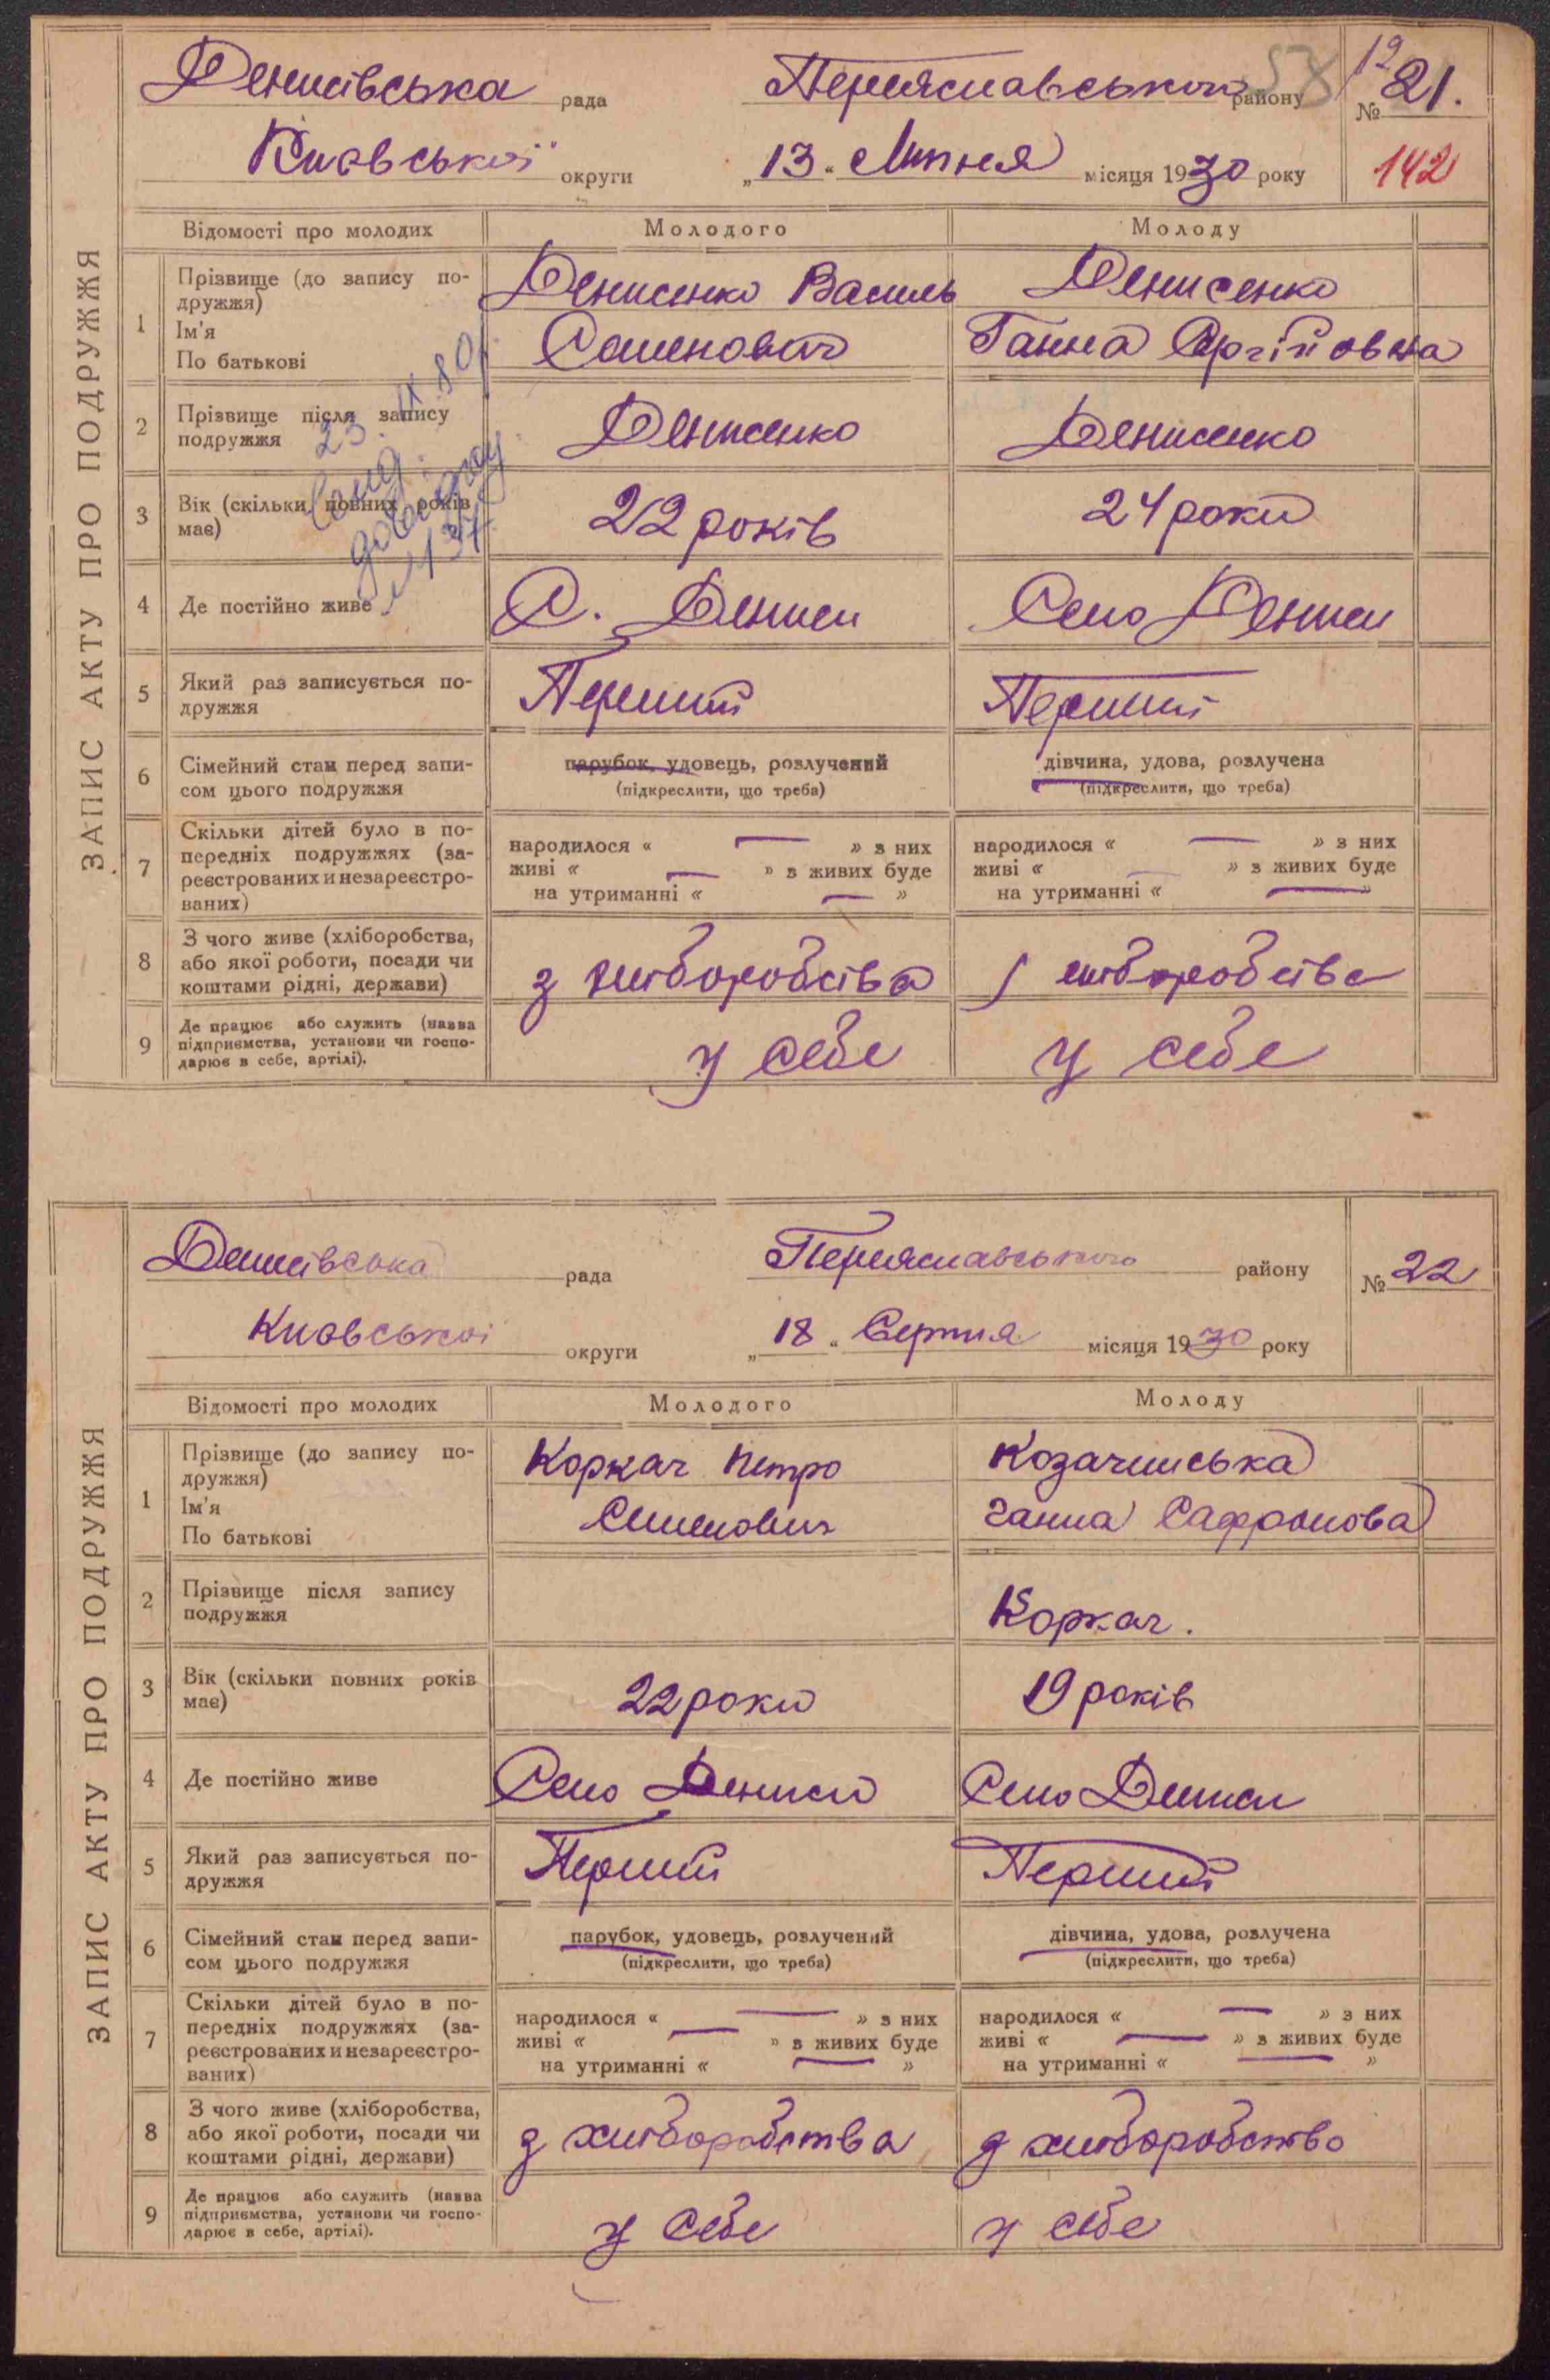 ЗАПИС АКТУ ПРО ПОДРУЖЖЯ
Денисівська рада Переяславського району № 21.
Київської округи „13“ Липня місяця 1930 року 142
Відомості про молодих Молодого Молоду
1 Прізвище (до запису по-
дружжя)
Ім'я
По батькові
Денисенко Василь
Семенович
Денисенко
Ганна Сергіїовна
2 Прізвище після запису
подружжя
Денисенко Денисенко
23. IX. 80
довідку
№ 137
3 Вік (скільки повних років
має)
22 років 24 роки
4 Де постійно живе С. Дениси Село Дениси
5 Який раз записується по-
дружжя
Перший Перший
6 Сімейний стан перед запи-
сом цього подружжя
парубок, удовець, розлучений
(підкреслити, що треба)
дівчина, удова, розлучена
(підкреслити, що треба)
7 Скільки дітей було в по-
передніх подружжях (за-
реєстрованих и незареєстро-
ваних)
народилося « — » з них
живі « — » з живих буде
на утриманні « — »
народилося « — » з них
живі « — » з живих буде
на утриманні « — »
8 З чого живе (хліборобства,
або якої роботи, посади чи
коштами рідні, держави)
з хліборобства хліборобства
9 Де працює або служить (назва
підприємства, установи чи госпо-
дарює в себе, артілі).
у себе у себе
ЗАПИС АКТУ ПРО ПОДРУЖЖЯ
Денисівська рада Переяславського району № 22
Київської округи „18“ Серпня місяця 1930 року
Відомості про молодих Молодого Молоду
1 Прізвище (до запису по-
дружжя)
Ім'я
По батькові
Коркач Петро
Семенович
Козачинська
Ганна Сафронова
2 Прізвище після запису
подружжя
Коркач.
3 Вік (скільки повних років
має)
22 роки 19 років
4 Де постійно живе Село Дениси Село Дениси
5 Який раз записується по-
дружжя
Перший Перший
6 Сімейний стан перед запи-
сом цього подружжя
парубок, удовець, розлучений
(підкреслити, що треба)
дівчина, удова, розлучена
(підкреслити, що треба)
7 Скільки дітей було в по-
передніх подружжях (за-
реєстрованих и незареєстро-
ваних)
народилося « — » з них
живі « — » з живих буде
на утриманні « — »
народилося « — » з них
живі « — » з живих буде
на утриманні « — »
8 З чого живе (хліборобства,
або якої роботи, посади чи
коштами рідні, держави)
з хліборобства з хліборобство
9 Де працює або служить (назва
підприємства, установи чи госпо-
дарює в себе, артілі).
у себе у себе